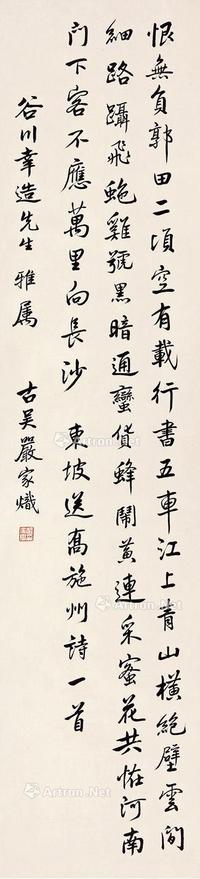 恨無負郭田二頃空有載行書五車江上青山橫絶壁雲間
細路躡飛虵雞號黑暗通蠻貨蜂鬧黄連采蜜花共恠河南
門下客不應萬里向長沙 東坡送髙施州詩一首
谷川幸造先生 雅属 古吴嚴家熾
Artron.Net